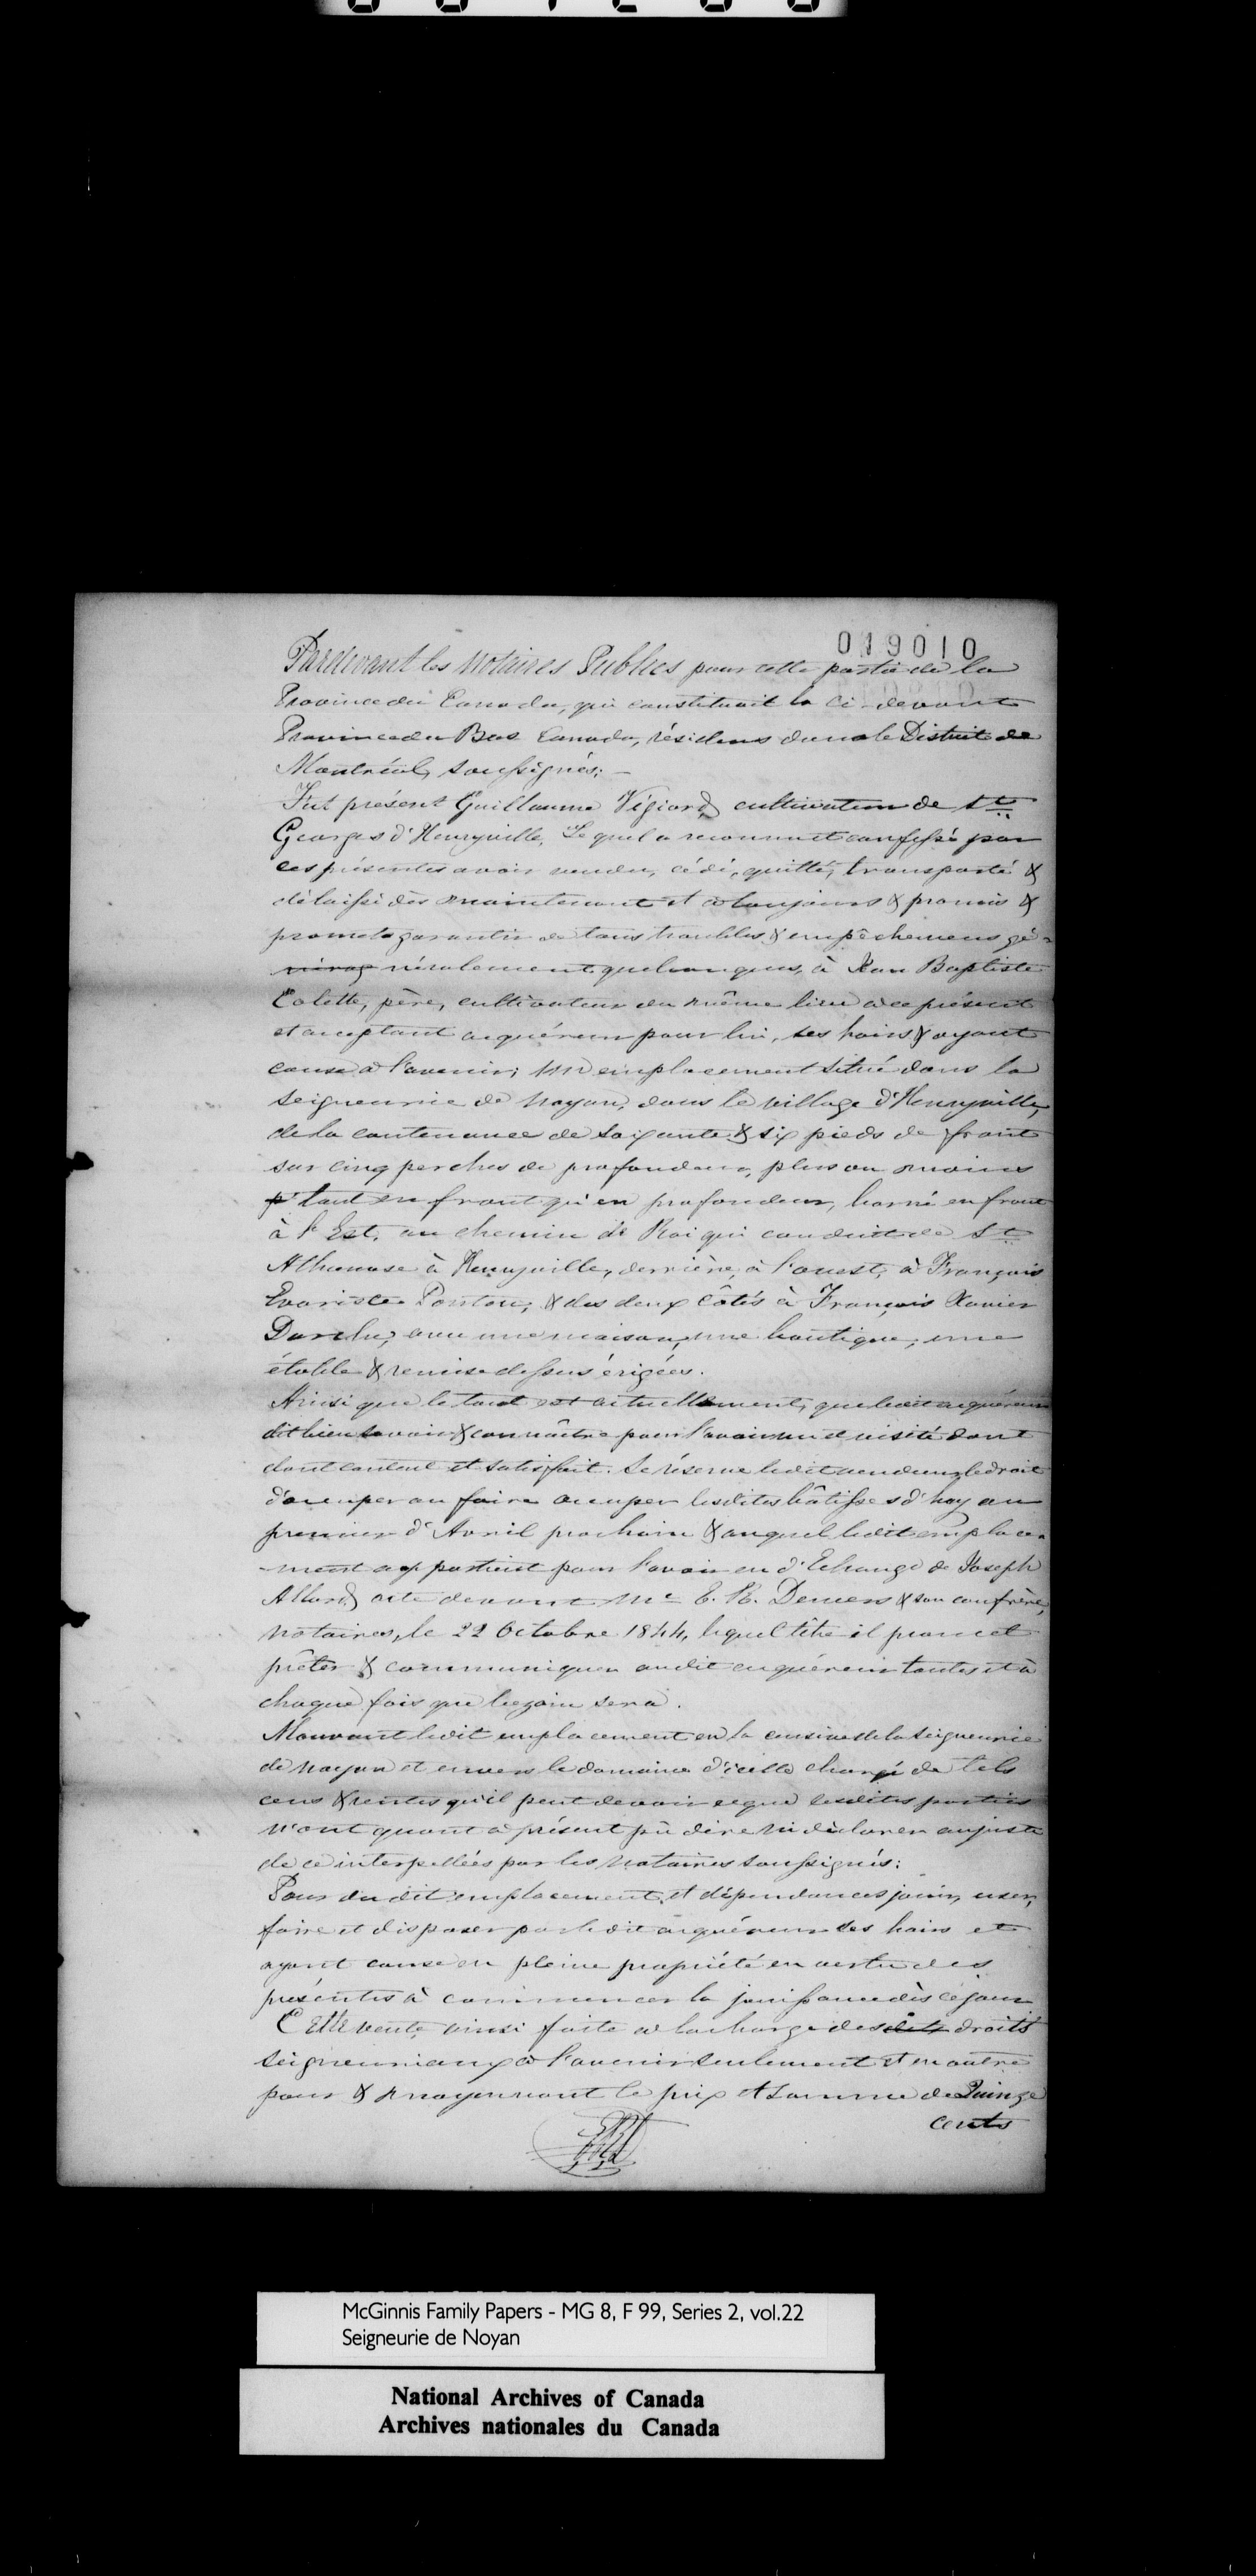 019010
Pardevant les Notaires Publics pour cette partie de la
Province du Canada, qui constituait la ci-devant
Province du Bas Canada, résidens dans le District de
Montréal, soussignés:
Fut présent Guillaume Vigeard, cultivateur de St
Georges d'Henryville, Lequel a reconnu et confessé par
ces présentes avoir vendu, cédé, quitté, transporté &
délaissé dès maintenant et à toujours & promis &
promet garantir de tous troubles & empêchemens gé-
néralement quelconques, à Jean Baptiste
Colette, père, cultivateur du même lieu à ce présent
et acceptant acquéreur pour lui, ses hoirs & ayant
cause à l'avenir; un emplacement situé dans la
Seigneurie de Noyan, dans le village d'Henryville,
de la contenance de soixante & six pieds de front
sur cinq perches de profondeur, plus ou moins
tant en front qu'en profondeur, borné en front
à l'Est, au chemin de Roi qui conduit de St
Athanase à Henryville, derrière, à l'ouest, à François
Evariste Ponton, & des deux côtés à François Xavier
Darche, avec une maison, une boutique, une
étable & remise dessus érigées.
Ainsi que le tout est actuellement, que ledit acquéreur
dit bien savoir & connaître pour l'avoir vu et visité dont
dont content et satisfait. Se réserve ledit vendeur le droit
d'occuper ou faire occuper lesdites bâtisses d'hoy au
premier d'Avril prochain & auquel ledit emplace-
ment appartient pour l'avoir eu d'Echange de Joseph
Allard, acte devant Me E. R. Demers & son confrère,
Notaires, le 22 Octobre 1844, lequel titre il promet
prêter & communiquer audit acquéreur toutes et à
chaque fois que bezoin sera.
Mouvant ledit emplacement en la censive de la Seigneurie
de Noyan et envers le domaine d'icelle chargé de tels
cens & rentes qu'il peut devoir ce que lesdites parties
n'ont quant à présent pû dire ni déclarer au juste
de ce interpellées par les Notaires soussignés:
Pour du dit emplacement et dépendances jouir, user,
faire et disposer par ledit acquéreur ses hoirs et
ayant cause en pleine propriété en vertu des
présentes à commencer la jouissance dès ce jour
Cette vente ainsi faite à la charge des dits droits
seigneuriaux à l'avenir seulement et en outre
pour & moyennant le prix et somme de Quinze
cents
McGinnis Family Papers - MG 8, F 99, Series 2, vol.22
Seigneurie de Noyan
National Archives of Canada
Archives nationales du Canada